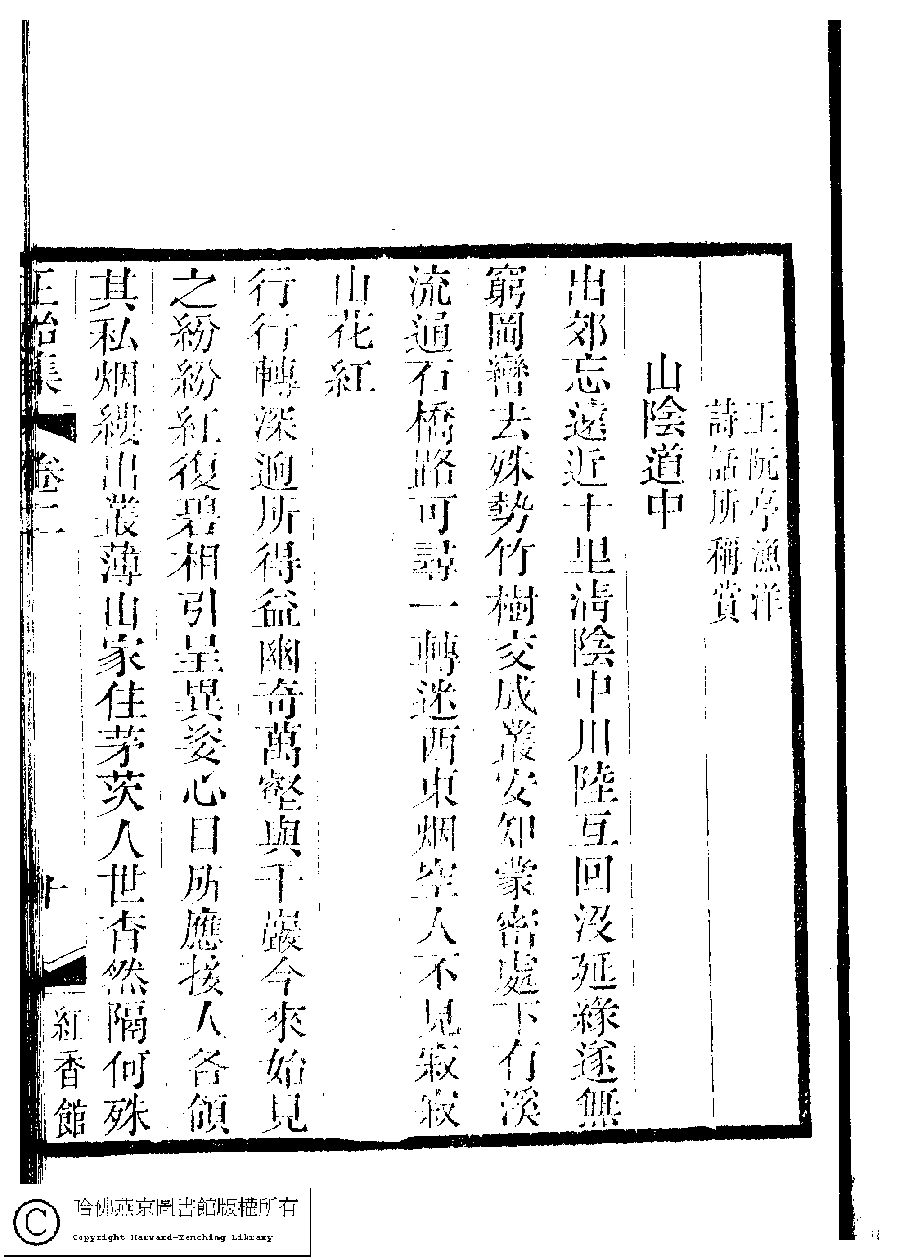 王阮亭漁洋
詩話所稱賞
山陰道中
出郊忘遠近十里清陰中川陸互回沒延緣遂無
窮岡巒去殊勢竹樹交成叢安知蒙密處下有溪
流通石橋路可尋一轉迷西東烟空人不見寂寂
山花紅
行行轉深迥所得益幽奇萬壑與千巖今來始見
之紛紛紅復碧相引呈異姿心目所應接人各領
其私烟縷出叢薄山家住茅茨人世杳然隔何殊
正始集
卷二
紅香館
哈佛燕京圖書館版權所有
Copyright Harvard-Yenching Library